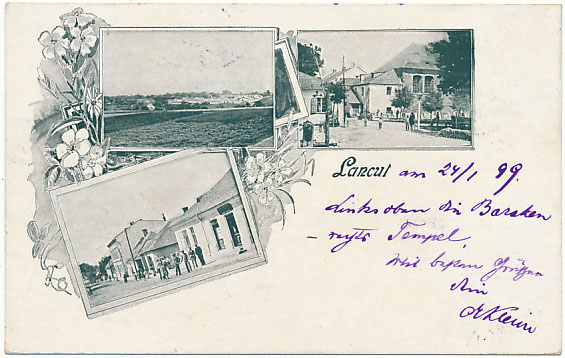 Lancut am 24/1 99.
Links oben die Baraken
– rechts Tempel,
Mit besten Grüßen
Dein
Klein